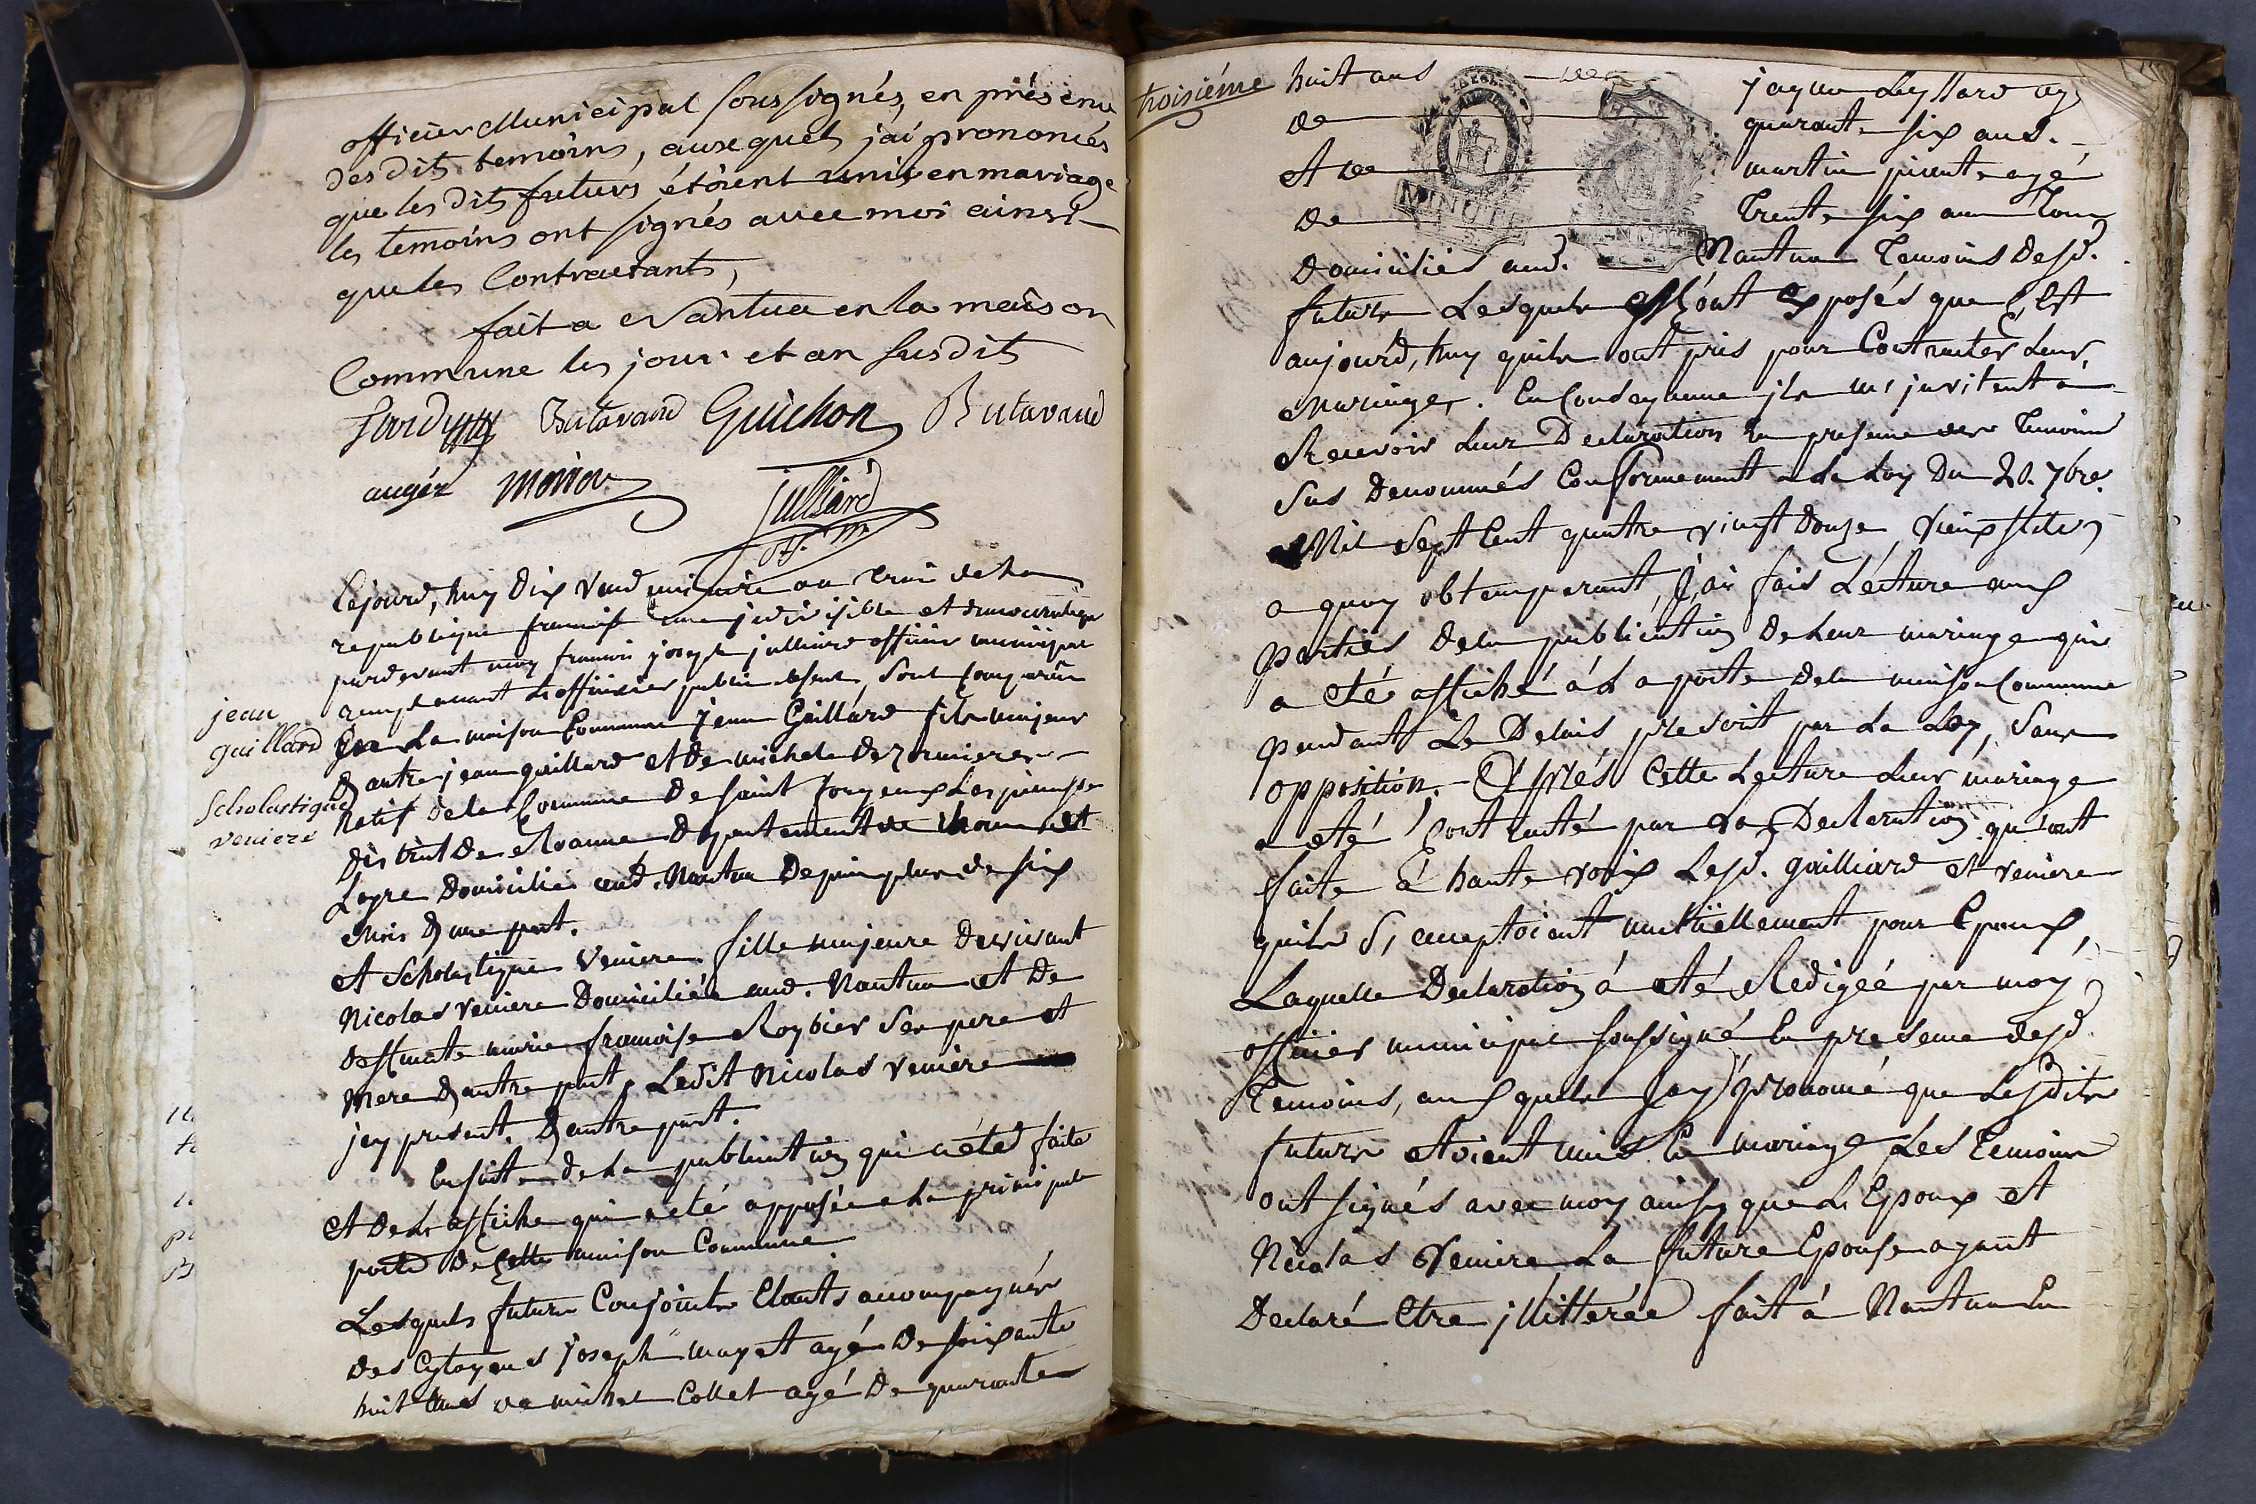 officier Municipal soussignés, en présence
des dits temoins, auxquels j'ai prononcés
que les dits futurs étoient unis en mariage
les temoins ont signés avec moi ainsi
que les Contractants,
fait a Nantua en la maison
Commune les jour et an susdits
Butavand Guichon Butavand
augér
Julliard
off. m.
Cejourd'huy dix vendemiaire an trois de la
republique francoise une jndivisible et democratique
pardevant moy francois joseph julliard officier municipal
remplacant Lofficier public absent, Sont comparûs
jean
guillard
En La maison Commune jean Gaillard fils majeur
d'autre jean gaillard et de michele dezormiere
Scholastique
veniere
natif de la Commune de saint
District de Roanne Departement de Rhone et
Loyre Domicilié aud. Nantua Depuis plus de six
Mois d'une part.
et Scholastique Veniere fille majeure du vivant
Nicolas veniere Domiciliée aud. Nantua et De
deffunte marie francoise Roybier ses pere et
mere d'autre part, Ledit Nicolas veniere
jcy present d'autre part.
Ensuite de la publication qui a été faite
et de L'affiche qui a été apposée a La principale
porte de cette maison Commune
Lesquels futurs Conjoints Etants accompagnés
des Cytoyens Joseph mayet agé de soixante
huit ans de michel Collet agé de quarante
troisiéme
huit ans de jaque agé
de quarante six ans.
et de martin agé
de trente six ans Tous
Domiciliés aud. Nantua Temoins desd.
MINUTE
futurs Lesquels ont exposés que C'est
aujourd'huy quils ont pris pour Contracter Leur
Mariage. En Consequence jls m'jnvitent à
Recevoir Leur Declaration En presence des Temoins
sus denommés Conformement a La Loy Du 20. 7bre.
Mil Sept Cent quatre vingt Douze vieux stile
a quoy obtemperant, J'ai fais Lécture aux
parties de la publication de Leur mariage qui
a été affiché à La porte de la maison Commune
pendant Le Delais prescrit par La Loy, Sans
opposition. Après Cette Lecture Leur mariage
a eté Contracté par La Declaration qu'ont
faite à haute voix Lesd. gailliard et veniere
quils s'acceptoient mutüellement pour Epoux,
Laquelle Declaration à eté Redigeé par moy
officier municipal soussigné En presence desd.
Temoins, auxquels J'ay prononcé que Lesdits
futurs etoient unis En mariage Les Temoins
ont signés avec moy ainsy que L'Epoux et
Nicolas Veniere La future Epouse ayant
Declaré Etre jllitterée fait à Nantua En